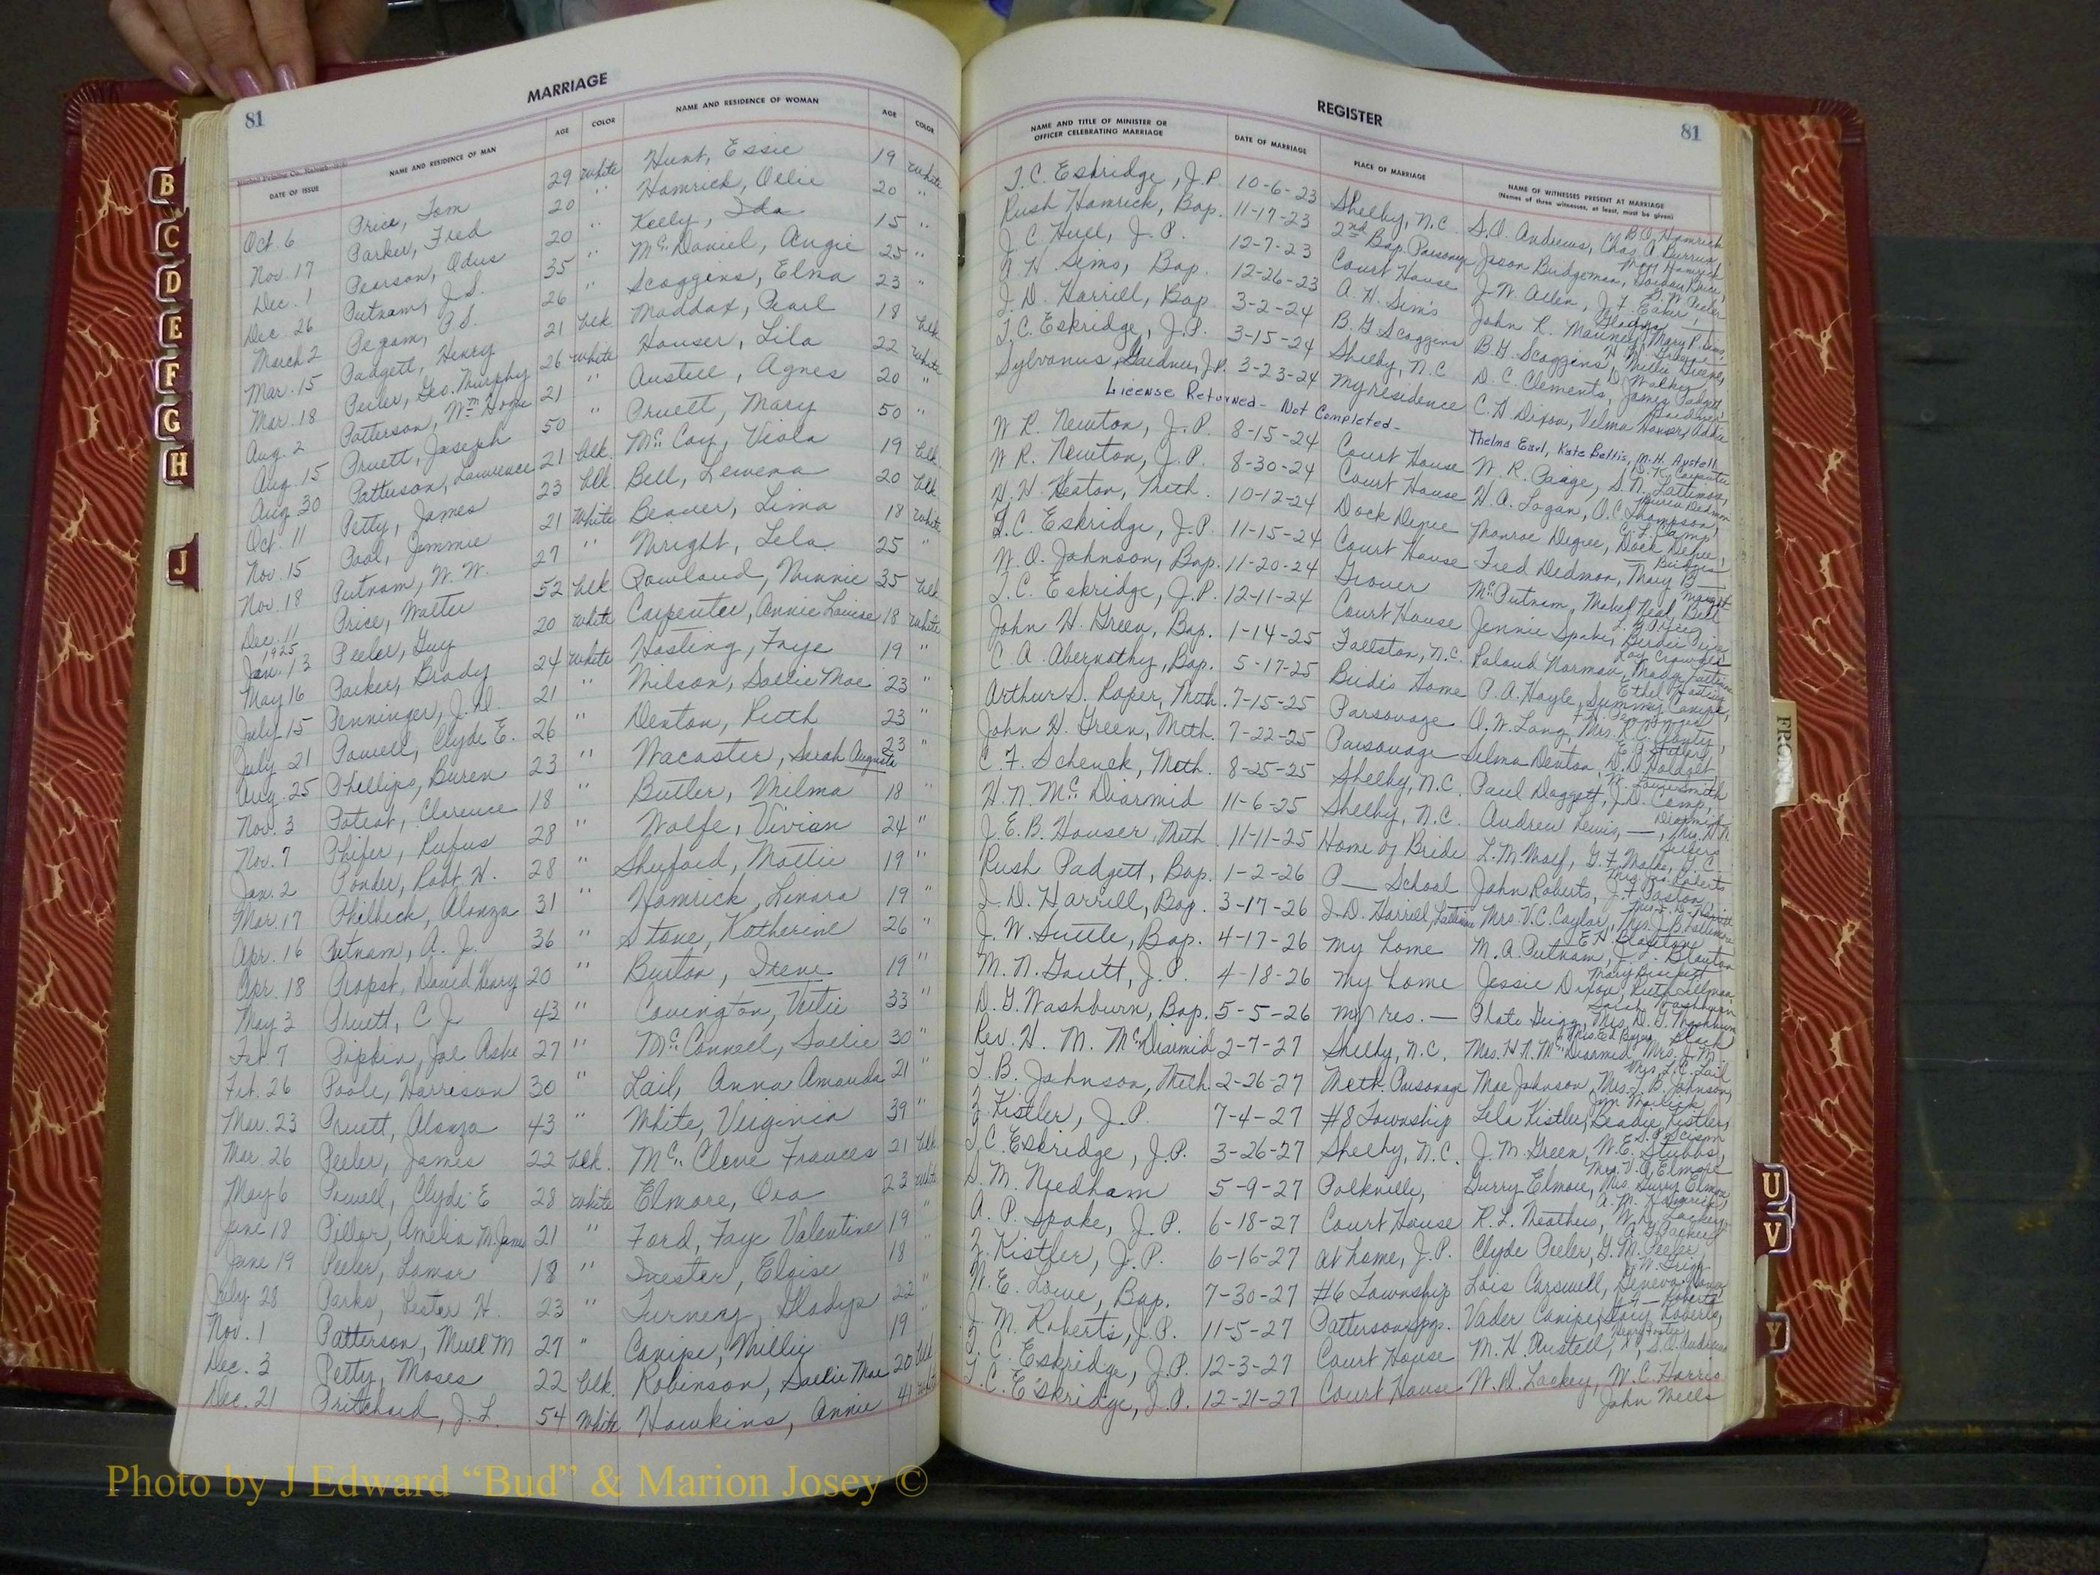 81
MARRIAGE
DATE OF ISSUE NAME AND RESIDENCE OF MAN AGE COLOR NAME AND RESIDENCE OF WOMAN AGE COLOR
Oct. 6 Price, Tom 29 White Hunt, Essie 19 White
Nov. 17 Parker, Fred 20 " Hamrick, Ollie 20 "
Dec. 1 Pearson, Odus 20 " Kelly, Ida 15 "
Dec. 26 Putnam, J. S. 35 " McDaniel, Angie 25 "
March 2 Pegram, P.S. 26 " Scoggins, Elma 23 "
Mar. 15 Padgett, Henry 21 blk Maddox, Pearl 18 blk
Mar. 18 Peeler, Geo. Murphy 26 White Houser, Lila 22 White
Aug. 2 Patterson, Wm Hope 21 " Austell, Agnes 20 "
Aug. 15 Pruett, Joseph 50 " Pruett, Mary 50 "
Aug 30 Patterson, Lawrence 21 blk. McCoy, Viola 19 blk
Oct. 11 Petty, James 23 blk Bell, Lewena 20 blk
Nov. 15 Pool, Jimmie 21 White Beaver, Lima 18 White
Nov. 18 Putnam, W. W. 27 " Wright, Lela 25 "
Dec. 11 Price, Walter 52 blk Rowland, Minnie 35 blk
1925
Jan. 13 Peeler, Guy 20 White Carpenter, Annie Louise 18 White
May 16 Parker, Brady 24 White Hasting, Faye 19 "
July 15 Penninger, J. D. 21 " Wilson, Sallie Mae 23 "
July 21 Powell, Clyde E. 26 " Denton, Ruth 23 "
Aug. 25 Phillips, Buren 23 " Wacaster, Sarah Augusta 23 "
Nov. 3 Poteat, Clarence 18 " Butler, Wilma 18 "
Nov. 7 Phifer, Rufus 28 " Wolfe, Vivian 24 "
Jan. 2 Ponder, Robt. H. 28 " Shuford, Mattie 19 "
Mar. 17 Philbeck, Alonzo 31 " Hamrick, Lenora 19 "
Apr. 16 Putnam, A. J. 36 " Stone, Katherine 26 "
Apr. 18 Propst, David Henry 20 " Burton, Irene 19 "
May 3 Pruett, C J 43 " Covington, Vettie 33 "
Feb. 7 Pipkin, Joe Ashe 27 " McConnell, Sallie 30 "
Feb. 26 Poole, Harrison 30 " Lail, Anna Amanda 21 "
Mar. 23 Pruett, Alonzo 43 " White, Virginia 39 "
Mar. 26 Peeler, James 22 blk. McClone Frances 21 blk
May 6 Powell, Clyde E 28 White Elmore, Ora 23 White
June 18 21 " Ford, Faye Valentine 19 "
June 19 Peeler, Lamar 18 " Iuester, Eloise 18 "
July 28 Parks, Lester H. 23 " Turner, Gladys 22 "
Nov. 1 Patterson, Mull M 27 " Canipe, Millie 19
Dec. 3 Petty, Moses 22 blk. Robinson, Sallie Mae 20 blk
Dec. 21 Pritchard, J. L. 54 White Hawkins, Annie 41 White
REGISTER
81
NAME AND TITLE OF MINISTER OR OFFICER CELEBRATING MARRIAGE DATE OF MARRIAGE PLACE OF MARRIAGE NAME OF WITNESSES PRESENT AT MARRIAGE
(Names of three witnesses, at least, must be given)
T. C. Eskridge, J.P. 10-6-23 Shelby, N.C. S.O. Andrews,
Rush Hamrick, Bap. 11-17-23 2nd Bap. Parsonage Jason Bridgeman,
J. C Hull, J. P. 12-7-23 Court House J. W. Allen,
A. H. Sims, Bap. 12-26-23 A. H. Sim's John R.
J. D. Harrill, Bap 3-2-24 B. G Scoggins B. G. Scoggins,
T. C. Eskridge, J.P. 3-15-24 Shelby, N.C D. C. Clement,
Sylvanus Gardner, J.P. 3-23-24 my residence C. H Dixon, Velma Houser,
License Returned - Not Completed - Thelma Earl, Kate Bettis, M. H. Austell
W R. Newton, J.P. 8-15-24 Court House W. R. Page,
W R. Newton, J.P. 8-30-24 Court House H. A. Logan, O.C. Thompson,
10-12-24 Dock Degree Monroe Degree,
T. C. Eskridge, J.P. 11-15-24 Court House Fred Dedmon,
W. O. Johnson, Bap. 11-20-24 Grover
T. C. Eskridge, J.P. 12-11-24 Court House
John H. Green, Bap. 1-14-25 Fallston, N.C. Roland Norman,
C. A. Abernathy, Bap. 5-17-25 Bride's Home P. A. Hoyle,
Arthur S. Roper, Meth. 7-15-25 Parsonage A. W. Long,
John H. Green, Meth. 7-22-25 Parsonage Selma Denton,
C F. Schenck, Meth. 8-25-25 Shelby, N.C. Paul Doggett,
H. N. McDiarmid 11-6-25 Shelby, N. C. Andrew Lewis,
J. E. B. Houser, Meth. 11-11-25 Home of Bride
Rush Padgett, Bap. 1-2-26 P__ School John Roberts,
J. D. Harrill, Bap. 3-17-26 J. D. Harrill, Lattimore
J. W. Suttle, Bap. 4-17-26 my home M. A. Putnam,
M. N. Gantt, J. P. 4-18-26 my home Jessie Dixon,
D. G. Washburn, Bap. 5-5-26 my res. — Plato Grigg, Mrs. D. G. Washburn
Rev. H. M. McDiarmid 2-7-27 Shelby, N.C. Mrs. H. N. McDiarmid,
T. B. Johnson, Meth 2-26-27 Meth. Parsonage Mae Johnson, Mrs. T. B. Johnson,
Z. Kistler, J. P. 7-4-27 #8 Township Lela Kistler, Beadie Kistler,
T. C. Eskridge, J.P. 3-26-27 Shelby, N.C. J. M. Green, W. E. Stubbs,
S. M. Needham 5-9-27 Polkville, Durry Elmore, Mrs. Durry Elmore
A. P. Spake, J. P. 6-18-27 Court House
Z. Kistler, J. P. 6-16-27 at home, J.P. Clyde Peeler, G. M. Peeler,
W. E. Lowe, Bap. 7-30-27 #6 Township Lois Carswell,
J. M. Roberts, J.P. 11-5-27 Patterson Spgs. Vader Canipe,
T. C. Eskridge, J.P. 12-3-27 Court House M. H. Austell, S.O. Andrews
T. C. Eskridge, J.P. 12-21-27 Court House W. D. Lackey, W. C. Harris
John Mills
B
C
D
E
F
G
H
J
U
V
Y
FRONT
Photo by J Edward “Bud” & Marion Josey ©